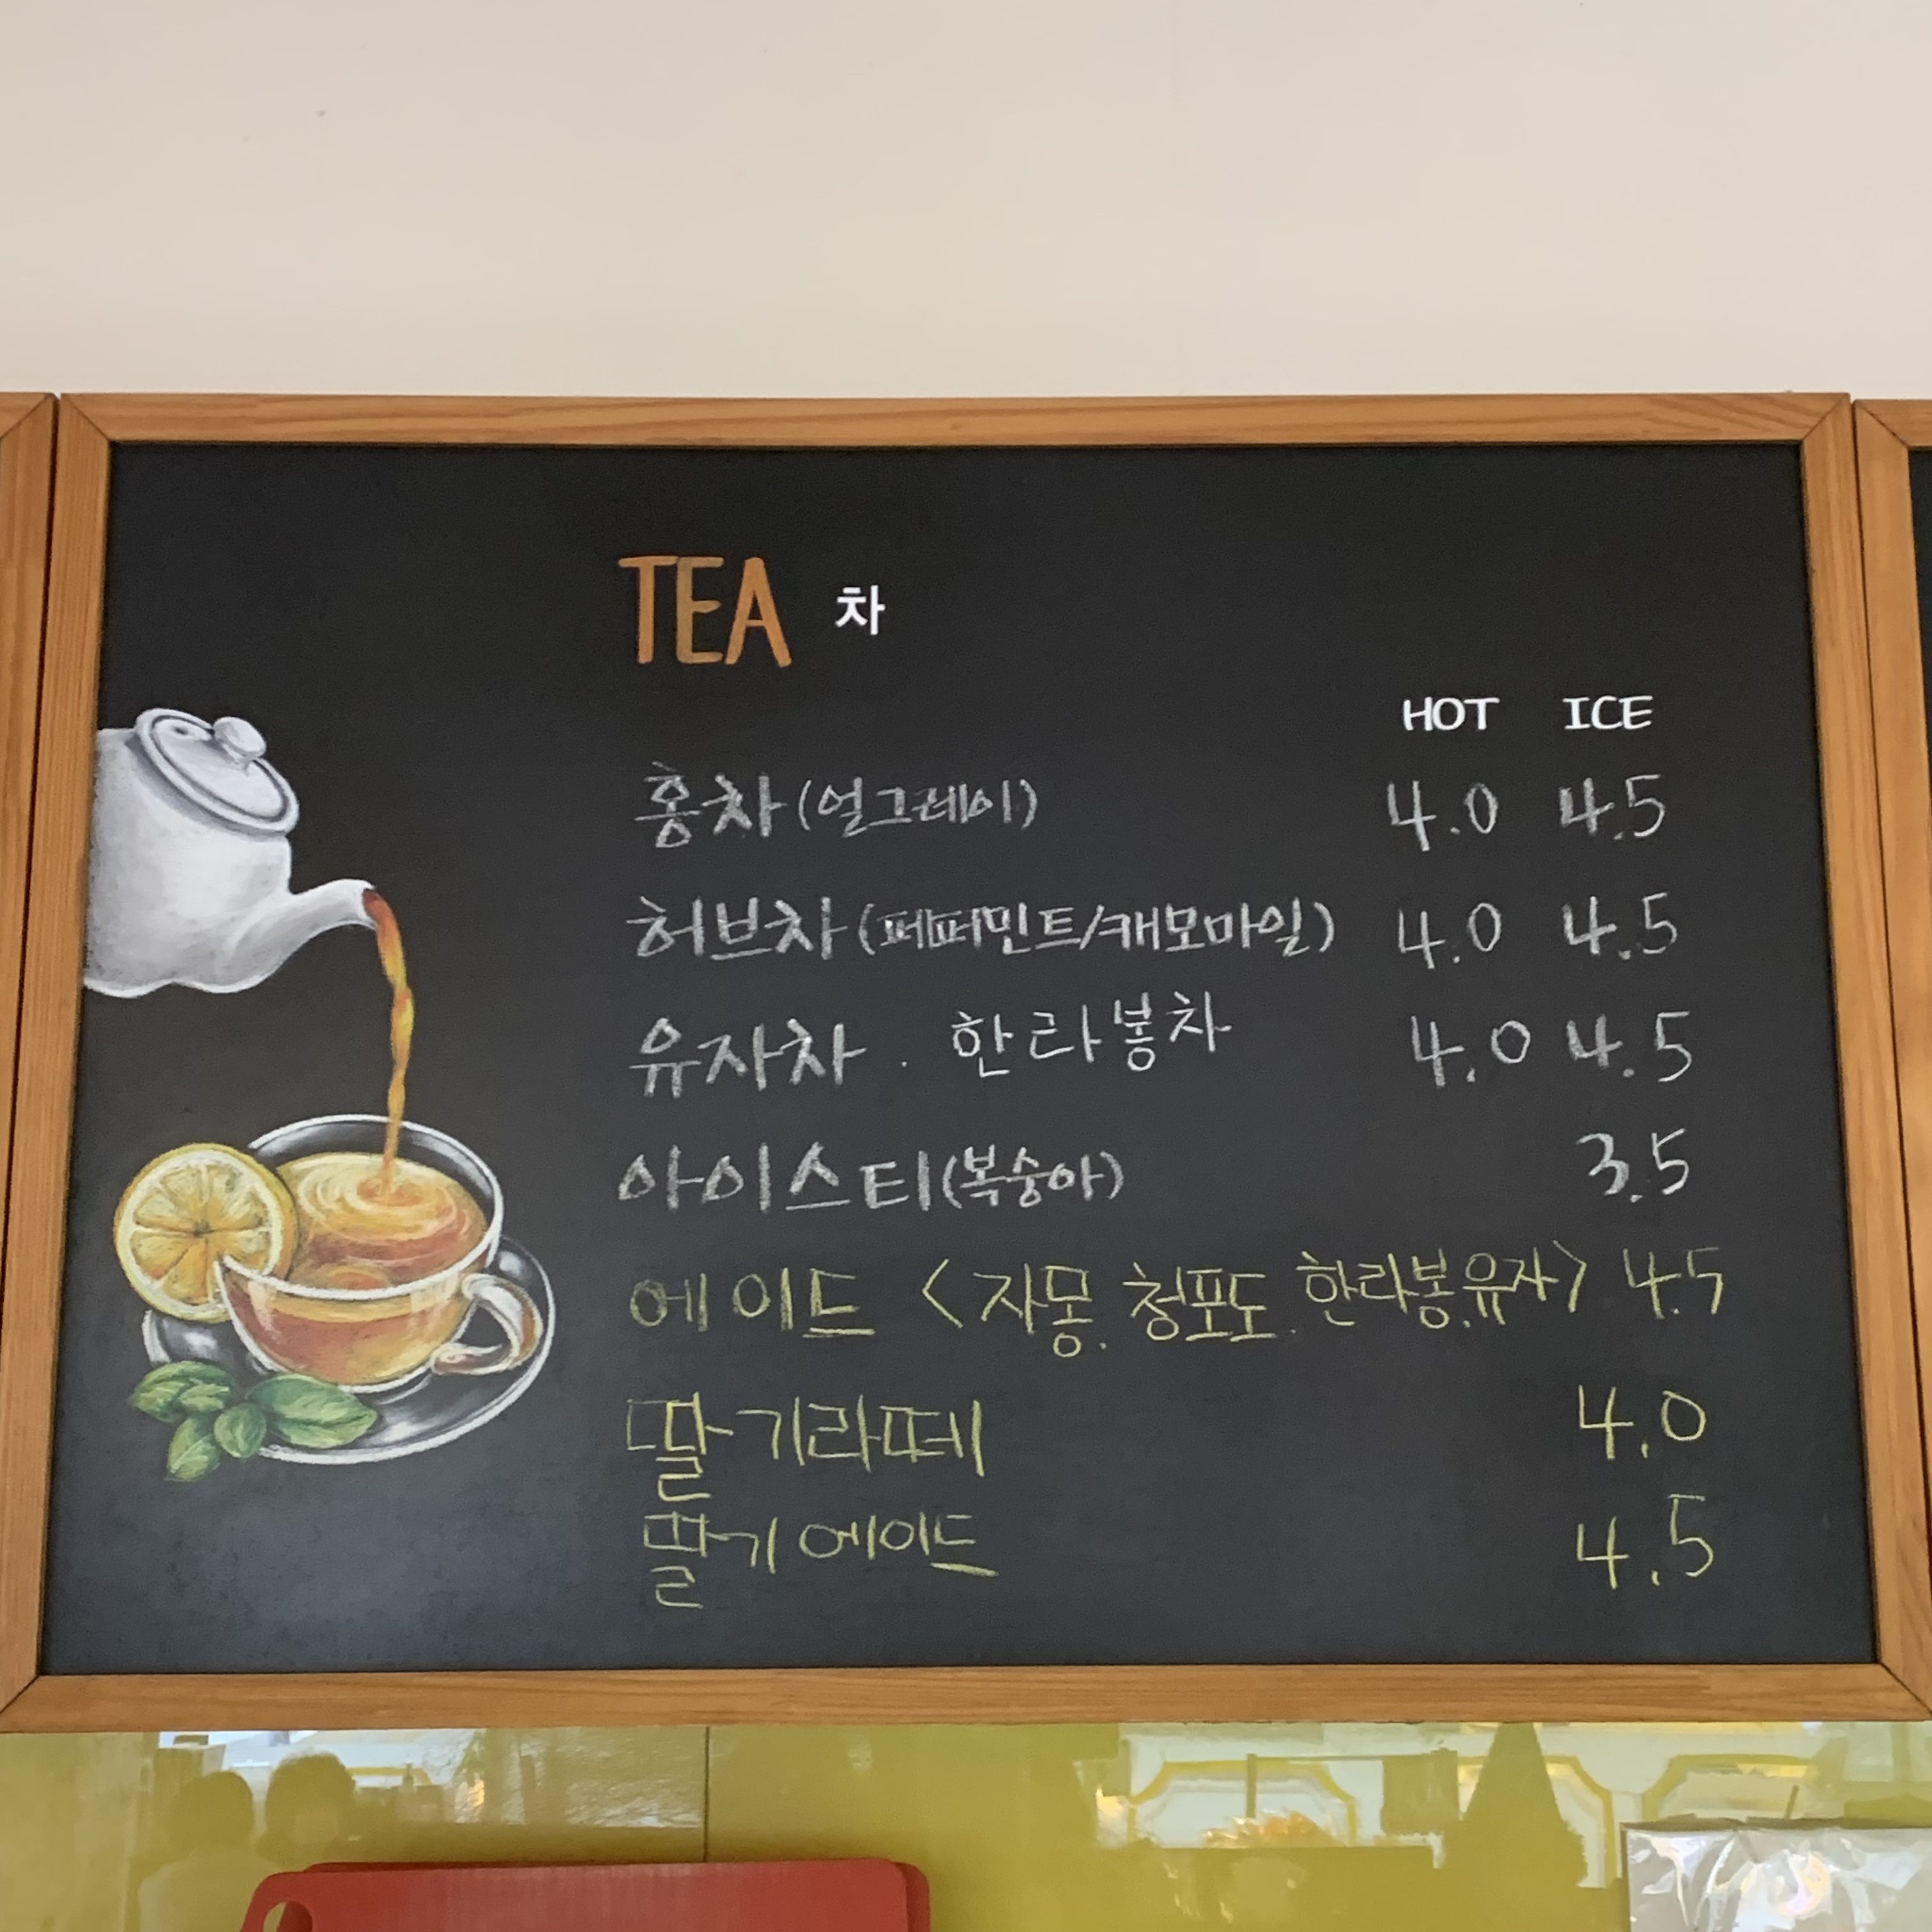 TEA 차
HOT ICE
홍차(얼그레이) 4.0 4.5
허브차(페퍼민트/캐모마일) 4.0 4.5
유자차 . 한라봉차 4.0 4.5
아이스티(복숭아) 3.5
에이드 <자몽. 청포도. 한라봉.유자> 4.5
딸기라떼 4.0
딸기에이드 4.5